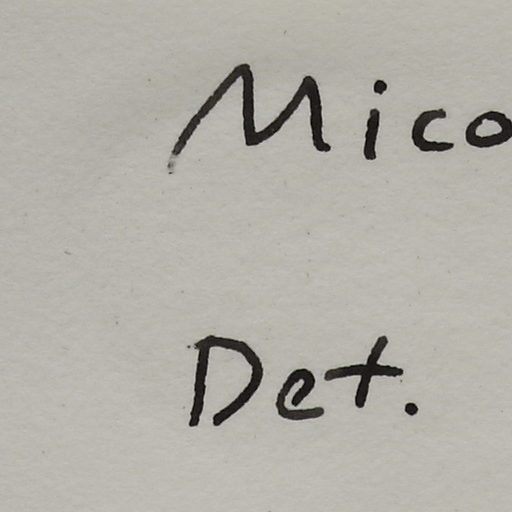 Mico
Det.